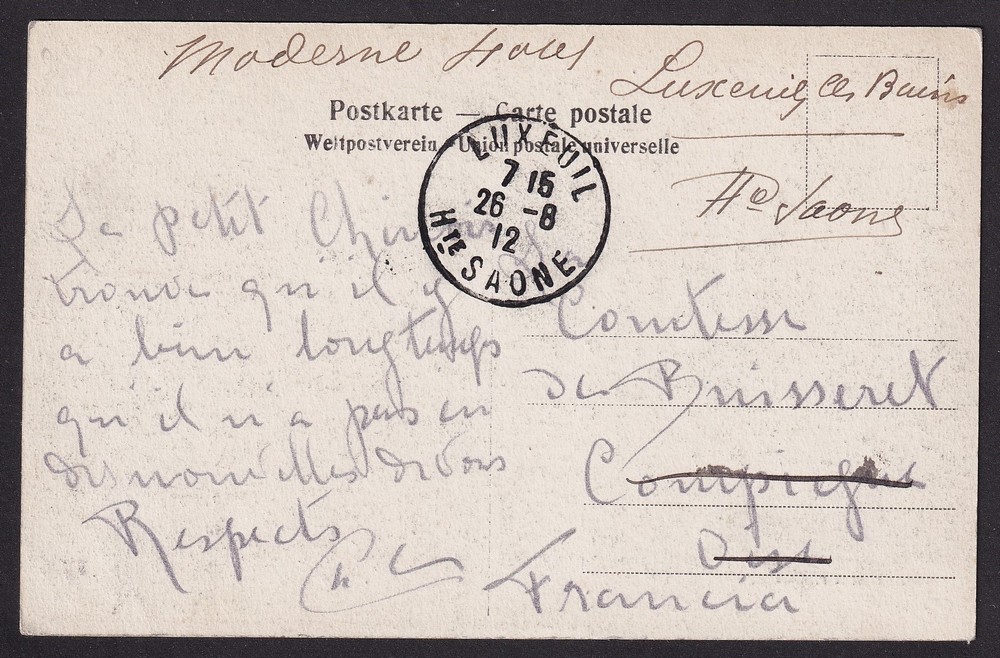 Moderne Hotel
Luxeuil les Bains
Hte Saone
Postkarte — Carte postale
Weltpostverein - Union postale universelle
LUXEUIL
7 15
26 - 8
12
HTE SAONE
Le petit
trouve qu'il y
a bien longtemps
qu'il n'a pas eu
des nouvelles de vous
Respects
Comtesse
de Buisseret
Compiegne
Oise
Francia